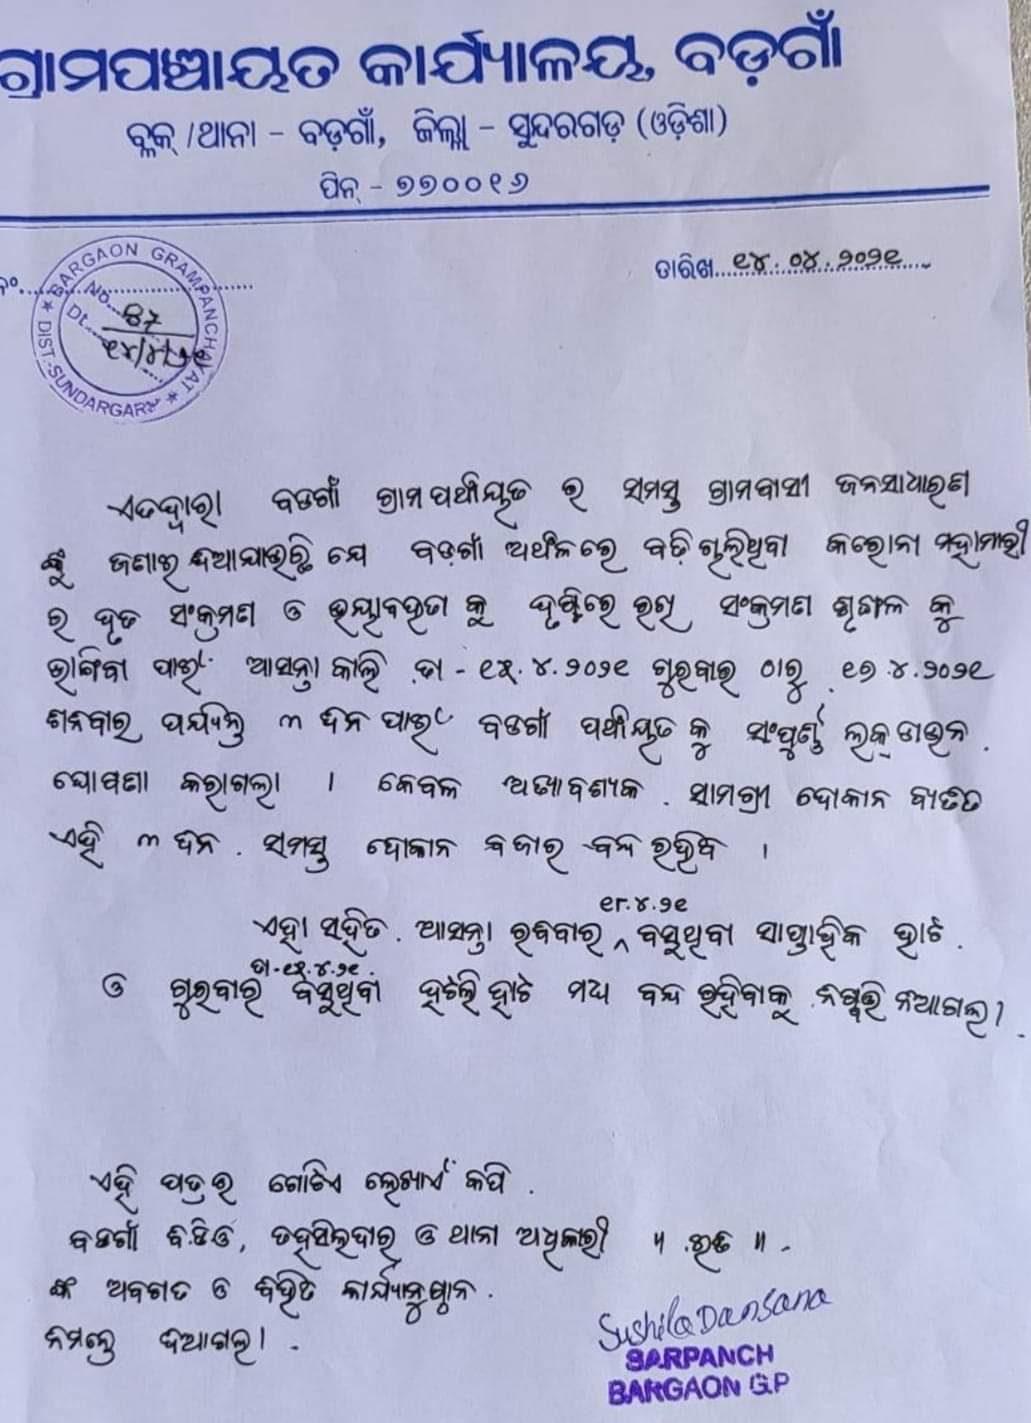 ଗ୍ରାମପଞ୍ଚାୟତ କାର୍ଯ୍ୟାଳୟ, ବଡ଼ଗାଁ
ବ୍ଲକ୍ /ଥାନା – ବଡ଼ଗାଁ, ଜିଲ୍ଲା – ସୁନ୍ଦରଗଡ଼ (ଓଡ଼ିଶା)
ପିନ୍ – ୭୭୦୦୧୬
ତାରିଖ ୧୪.୦୪.୨୦୨୧
BARGAON GRAMPANCHAYAT
DIST.-SUNDARGARH
No.
Dt. ୧୪/୪/୨୧
ଏତଦ୍ୱାରା ବଡଗାଁ ଗ୍ରାମ ପଞ୍ଚାୟତ ର ସମସ୍ତ ଗ୍ରାମବାସୀ ଜନସାଧାରଣ
ଙ୍କୁ ଜଣାଇ ଦିଆଯାଉଅଛି ଯେ ବଡ଼ଗାଁ ଅଞ୍ଚଳରେ ବଢ଼ି ଚାଲିଥିବା କରୋନା ମହାମାରୀ
ର ଦୃତ ସଂକ୍ରମଣ ଓ ଭୟାବହତା କୁ ଦୃଷ୍ଟିରେ ରଖି ସଂକ୍ରମଣ ଶୃଙ୍ଖଳ କୁ
ଭାଙ୍ଗିବା ପାଇଁ ଆସନ୍ତା କାଲି ତା - ୧୫.୪.୨୦୨୧ ଗୁରୁବାର ଠାରୁ ୧୭.୪.୨୦୨୧
ଶନିବାର ପର୍ଯ୍ୟନ୍ତ ୩ ଦିନ ପାଇଁ ବଡଗାଁ ପଞ୍ଚାୟତ କୁ ସଂପୂର୍ଣ୍ଣ ଲକ୍ ଡାଉନ
ଘୋଷଣା କରାଗଲା । କେବଳ ଅତ୍ୟାବଶ୍ୟକ ସାମଗ୍ରୀ ଦୋକାନ ବ୍ୟତିତ
ଏହି ୩ ଦିନ ସମସ୍ତ ଦୋକାନ ବଜାର ବନ୍ଦ ରହିବ ।
୧୮.୪.୨୧
ଏହା ସହିତ ଆସନ୍ତା ରବିବାର ^ ବସୁଥିବା ସାପ୍ତାହିକ ହାଟ
ତା-୧୫.୪.୨୧
ଓ ଗୁରୁବାର ବସୁଥିବା ହଟଲି ହାଟ ମଧ୍ୟ ବନ୍ଦ ରହିବାକୁ ନିଷ୍ପତ୍ତି ନିଆଗଲା ।
ଏହି ପତ୍ରର ଗୋଟିଏ ଲେଖାଏଁ କପି
ବଡଗାଁ ବି.ଡିଓ, ତହସିଲଦାର ଓ ଥାନା ଅଧିକାରୀ ॥ ଇତି ॥
ଙ୍କ ଅବଗତ ଓ ବିହିତ କାର୍ଯ୍ୟାନୁଷ୍ଠାନ
ନିମନ୍ତେ ଦିଆଗଲା ।
Sushila Dansana
SARPANCH
BARGAON G.P